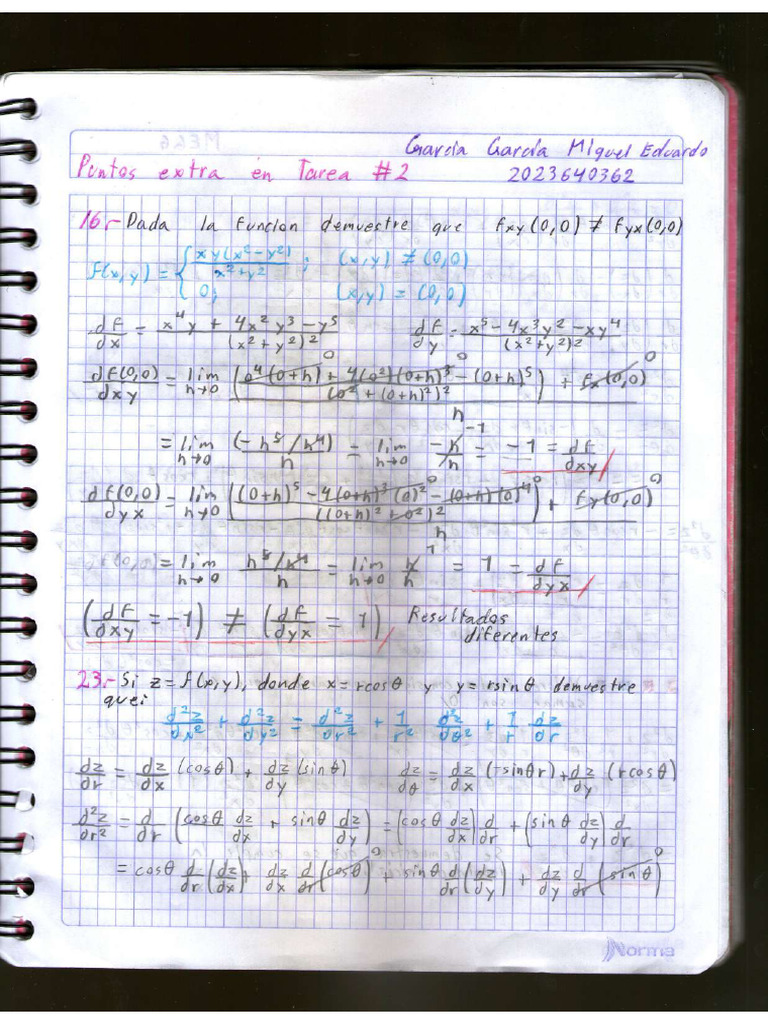 García García Miguel Eduardo
Puntos extra en Tarea #2 2023640362
16.- Dada la función demuestre que fxy(0,0) ≠ fyx(0,0)
f(x,y) = { xy(x²-y²)/x²+y² ; (x,y) ≠ (0,0)
0; (x,y) = (0,0)
df/dx = x⁴y + 4x²y³ - y⁵/(x²+y²)² df/dy = x⁵ - 4x³y² - xy⁴/(x²+y²)²
df(0,0)/dxy = lim h→0 (0⁴(0+h) + 4(0²)(0+h)³ - (0+h)⁵/(0² + (0+h)²)²) + fx(0,0)/h
= lim h→0 (-h⁵/h⁴)/h = lim h→0 -h/h = -1 = df/dxy
df(0,0)/dyx = lim h→0 ((0+h)⁵ - 4(0+h)³(0)² - (0+h)(0)⁴/((0+h)² + 0²)²) + fy(0,0)/h
= lim h→0 h⁵/h⁴/h = lim h→0 h/h = 1 = df/dyx
(df/dxy = -1) ≠ (df/dyx = 1) Resultados
diferentes
23.- Si z = f(x,y), donde x = rcosθ y y = rsinθ demuestre
que:
d²z/dx² + d²z/dy² = d²z/dr² + 1/r² d²z/dθ² + 1/r dz/dr
dz/dr = dz/dx (cosθ) + dz/dy (sinθ) dz/dθ = dz/dx (-sinθr) + dz/dy (rcosθ)
d²z/dr² = d/dr (cosθ dz/dx + sinθ dz/dy) = (cosθ dz/dx) d/dr + (sinθ dz/dy) d/dr
= cosθ d/dr (dz/dx) + dz/dx d/dr (cosθ) + sinθ d/dr (dz/dy) + dz/dy d/dr (sinθ)
Norma